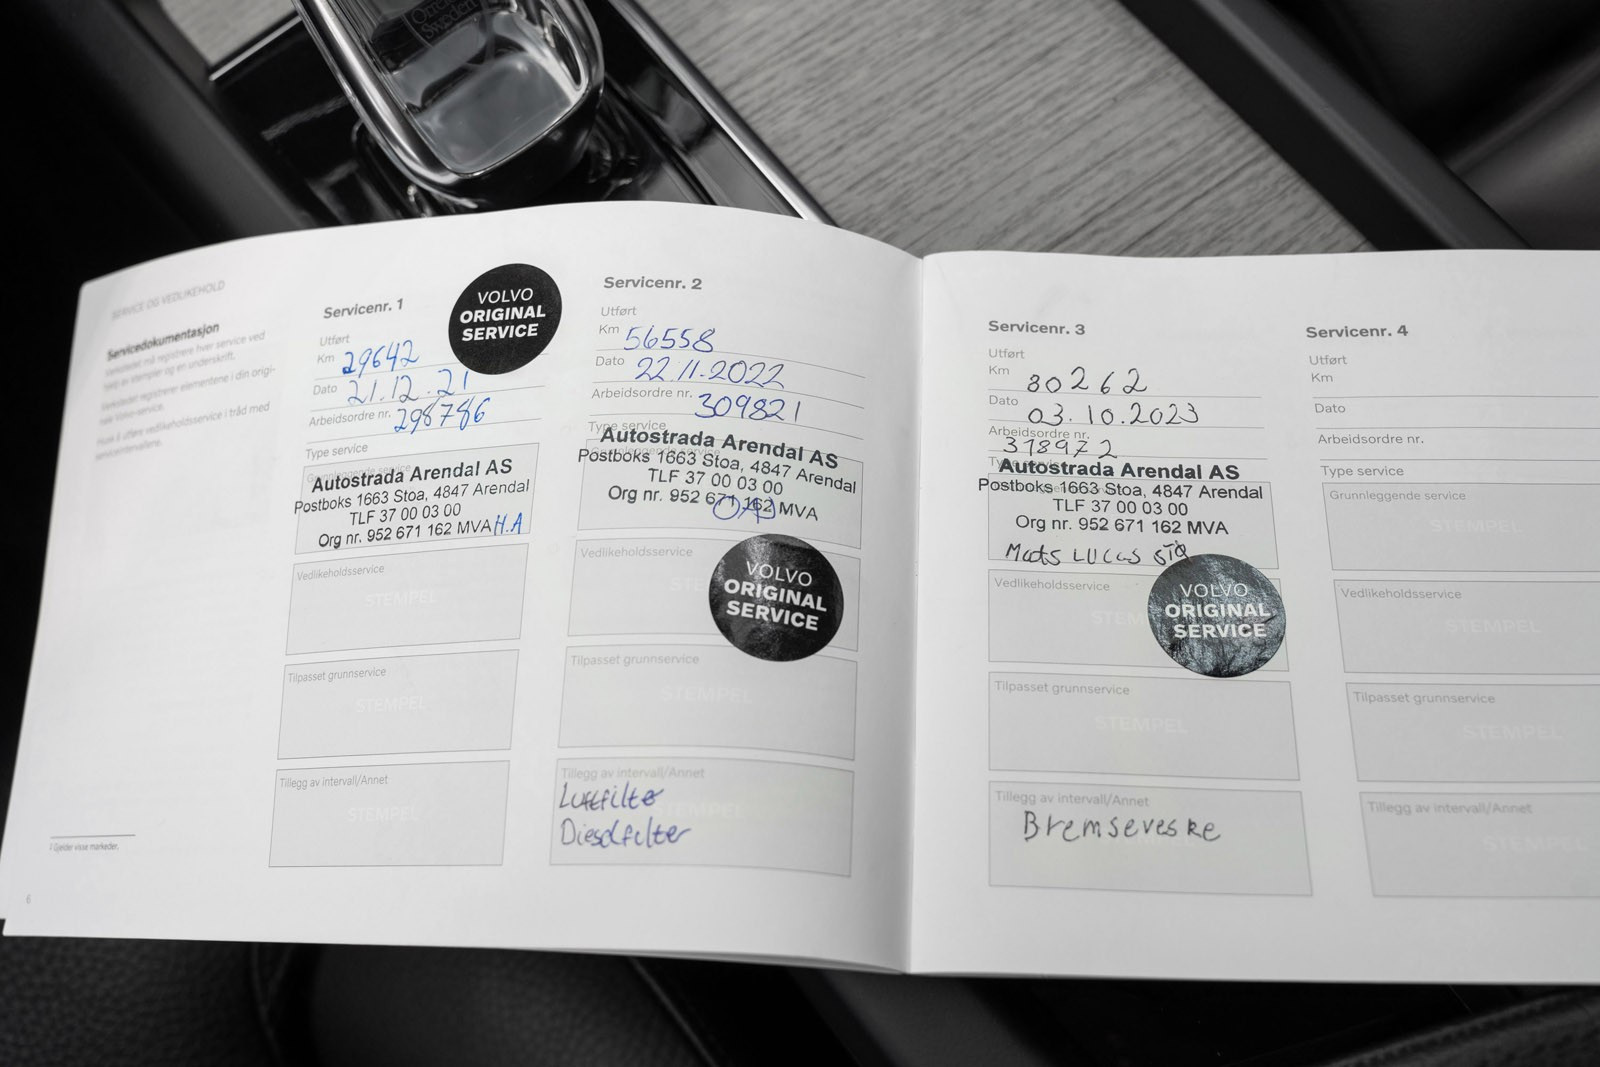 Orrefors
Sweden
SERVICE OG VEDLIKEHOLD
Servicedokumentasjon
Verkstedet må registrere hver service ved
hjelp av stempler og en underskrift.
Verkstedet registrerer elementene i din origi-
nale Volvo-service.
Husk å utføre vedlikeholdsservice i tråd med
serviceintervallene.
1 Gjelder visse markeder.
6
Servicenr. 1
VOLVO
ORIGINAL
SERVICE
Utført
Km 29642
Dato 21.12.21
Arbeidsordre nr. 298786
Type service
Grunnleggende service
Autostrada Arendal AS
Postboks 1663 Stoa, 4847 Arendal
TLF 37 00 03 00
Org nr. 952 671 162 MVA H.A
Vedlikeholdsservice
STEMPEL
Tilpasset grunnservice
STEMPEL
Tillegg av intervall/Annet
STEMPEL
Servicenr. 2
Utført
Km 56558
Dato 22.11.2022
Arbeidsordre nr. 309821
Type service
Autostrada Arendal AS
Postboks 1663 Stoa, 4847 Arendal
TLF 37 00 03 00
Org nr. 952 671 162 MVA
Vedlikeholdsservice
VOLVO
ORIGINAL
SERVICE
Tilpasset grunnservice
STEMPEL
Tillegg av intervall/Annet
Luftfilte
Dieselfilter
Servicenr. 3
Utført
Km 80262
Dato 03.10.2023
Arbeidsordre nr.
318972
Autostrada Arendal AS
Postboks 1663 Stoa, 4847 Arendal
TLF 37 00 03 00
Org nr. 952 671 162 MVA
Mats Lucas
Vedlikeholdsservice
VOLVO
ORIGINAL
SERVICE
Tilpasset grunnservice
STEMPEL
Tillegg av intervall/Annet
Bremseveske
Servicenr. 4
Utført
Km
Dato
Arbeidsordre nr.
Type service
Grunnleggende service
STEMPEL
Vedlikeholdsservice
STEMPEL
Tilpasset grunnservice
STEMPEL
Tillegg av intervall/Annet
STEMPEL